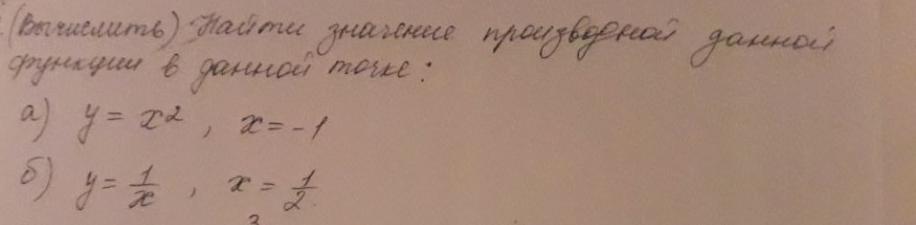 (Вычислить) Найти значение производной данной
функции в данной точке:
а) y = x², x = -1
б) y = 1/x, x = 1/2